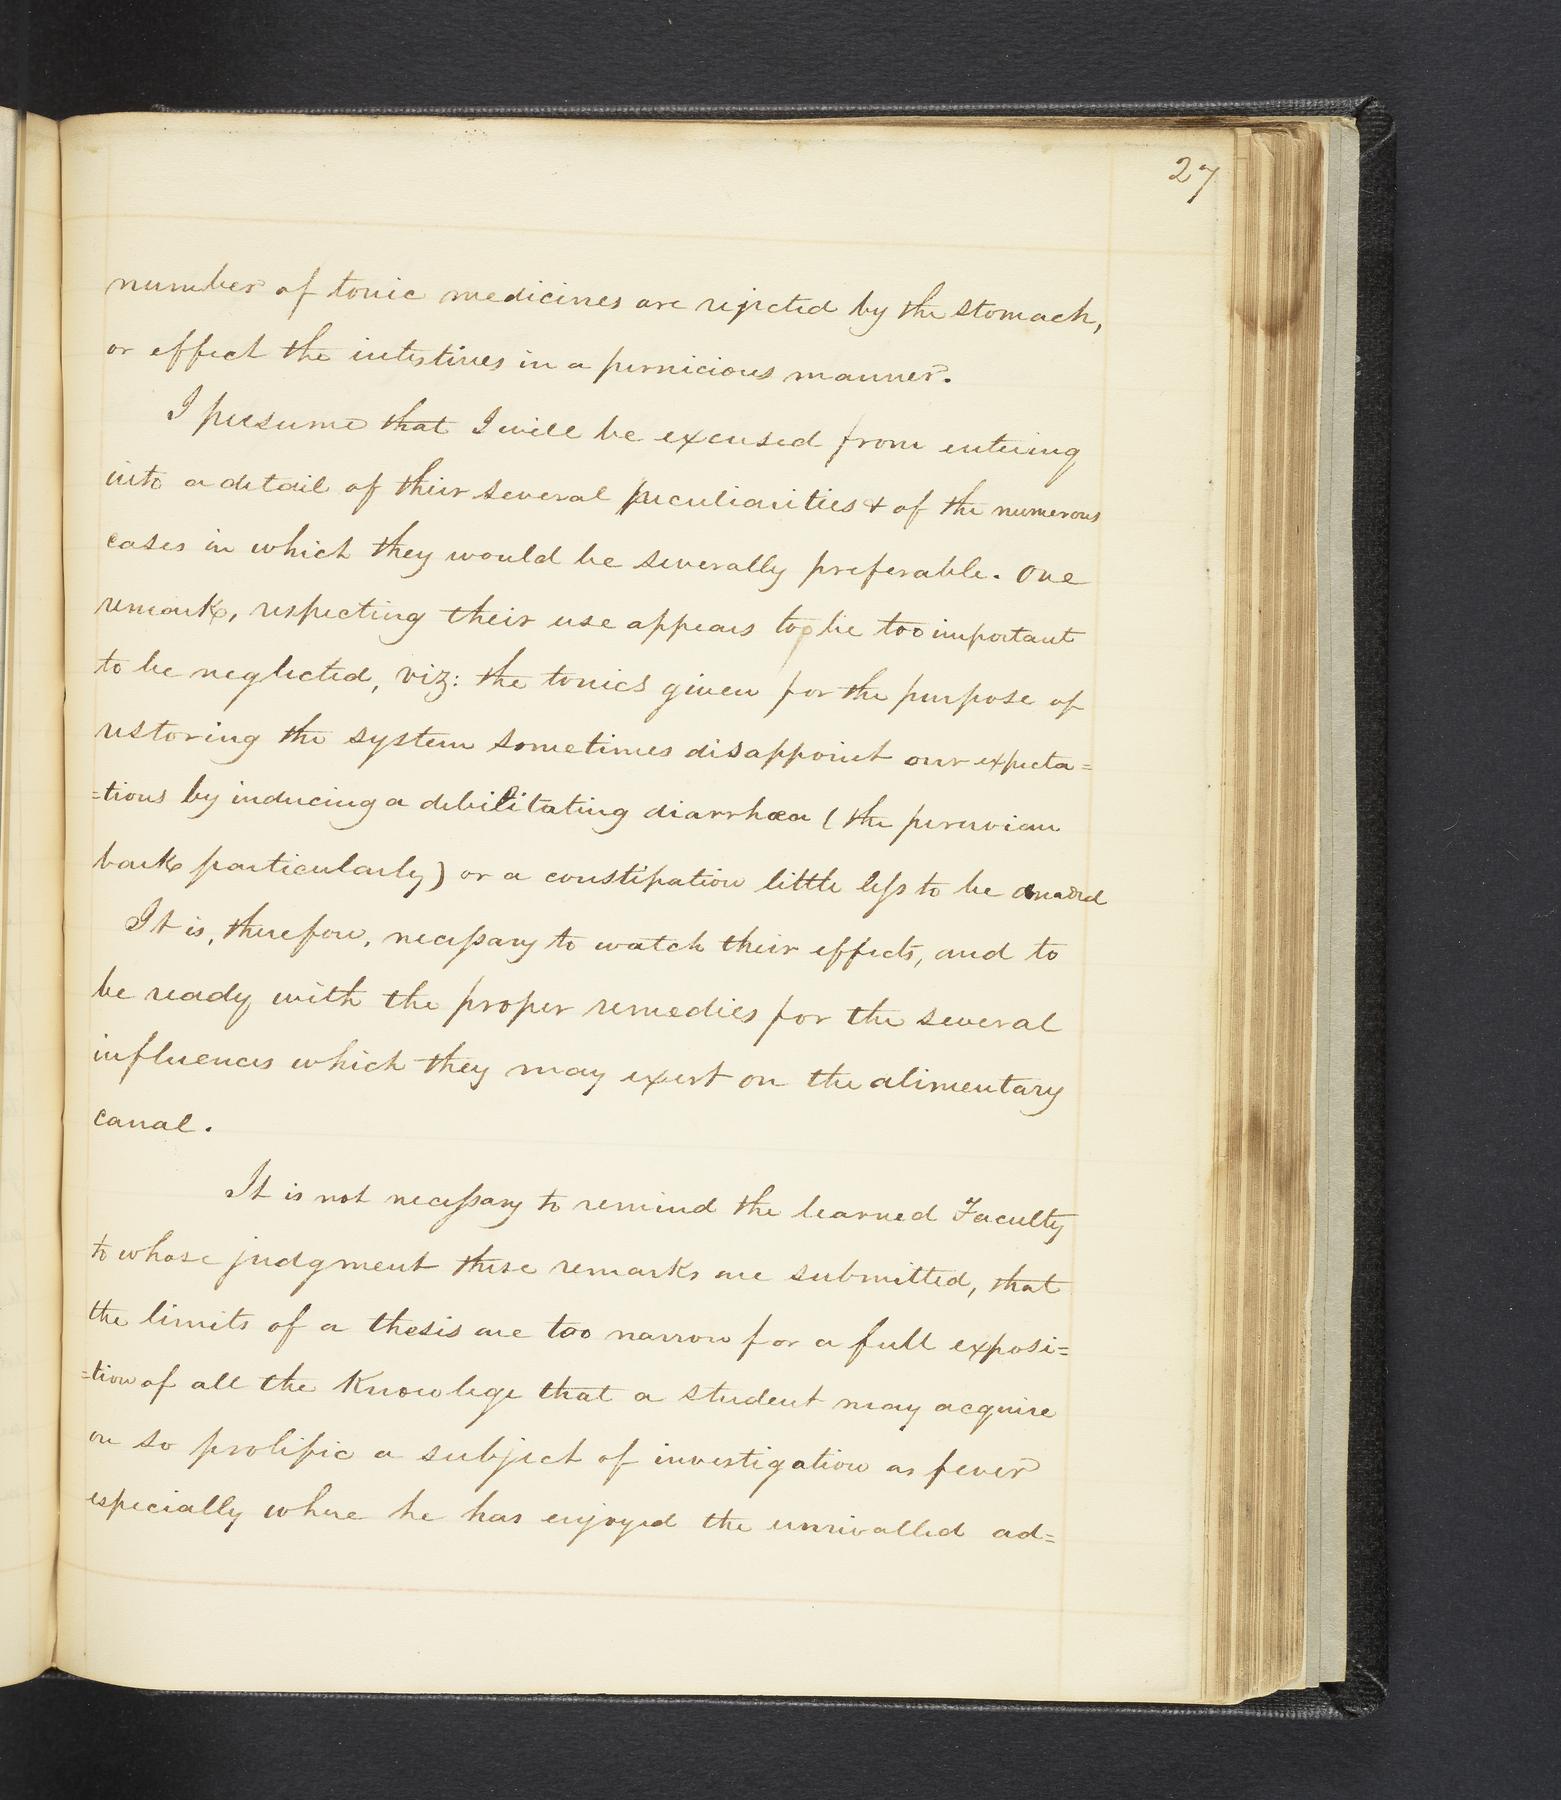 27
number of tonic medicines are rejected by the stomach,
or effect the intestines in a pernicious manner.
I presume that I will be excused from entering
into a detail of their several peculiarities & of the numerous
cases in which they would be severally preferable. One
remark, respecting their use appears to be too important
to be neglected, viz: the tonics given for the purpose of
restoring the system sometimes disappoint our expecta=
=tions by inducing a debilitating diarrhœa (the peruvian
bark particularly) or a constipation little less to be
It is, therefore, necessary to watch their effects, and to
be ready with the proper remedies for the several
influences which they may exert on the alimentary
canal.
It is not necessary to remind the learned Faculty
to whose judgment these remarks are submitted, that
the limits of a thesis are too narrow for a full exposi=
=tion of all the Knowlege that a student may acquire
on so prolific a subject of investigation as fever
especially where he has enjoyed the unrivalled ad=